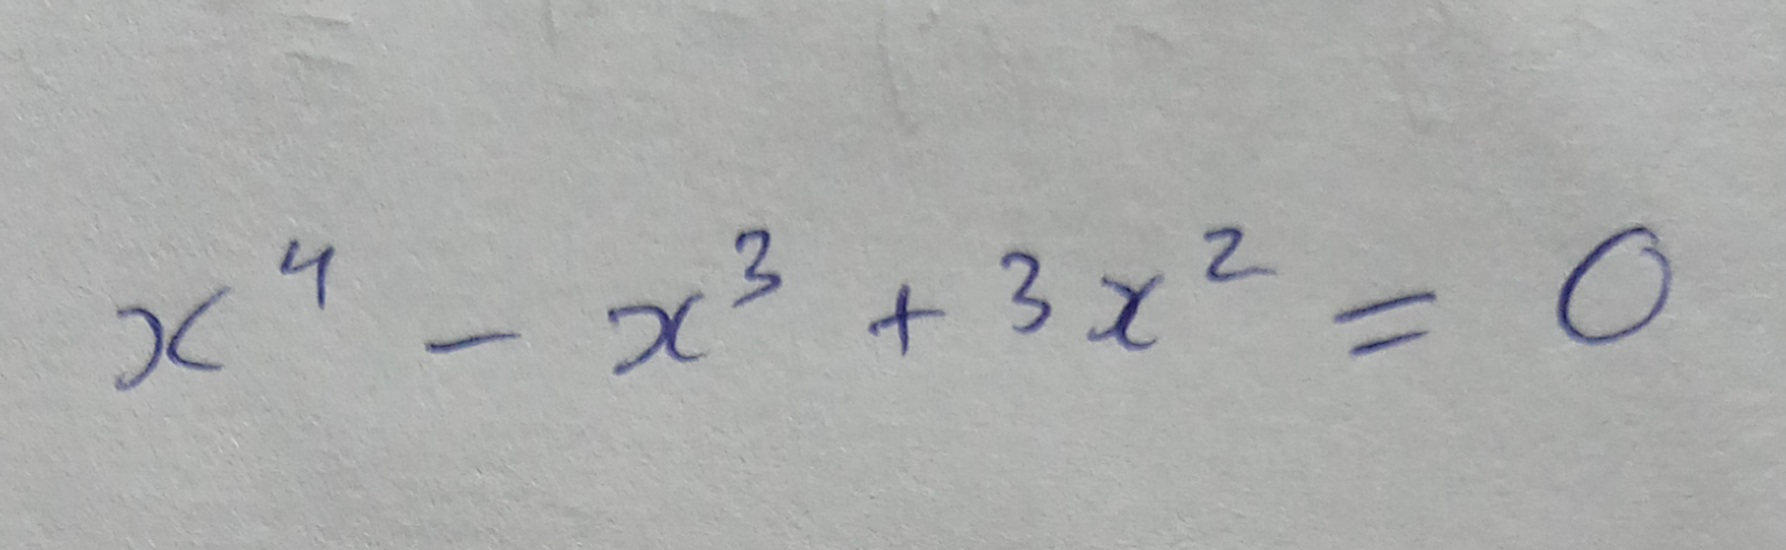 x⁴ - x³ + 3x² = 0